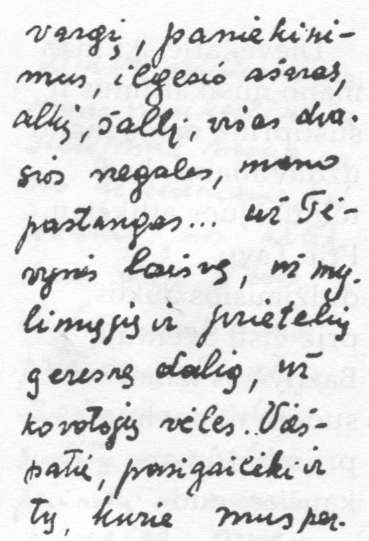 vargį, paniekini-
mus, ilgesio ašaras,
alkį, šaltį, visas dva-
sios negales, mano
pastangas... už Tė-
vynės laisvę, už my-
limųjų ir prietelių
geresnę dalią, už
kovotojų vėles. Vieš-
patie, pasigailėki ir
tų, kurie mus per-